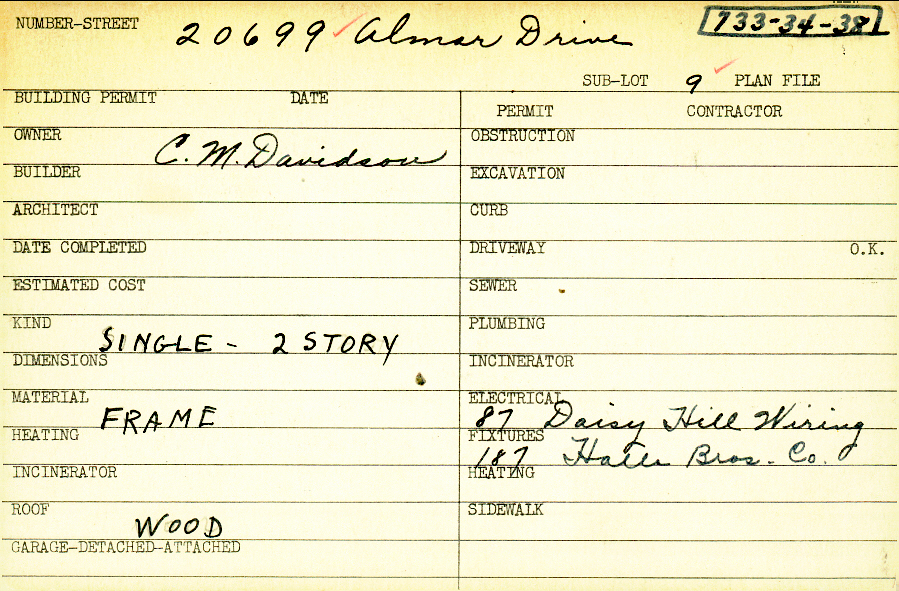 NUMBER-STREET 20699 Almar Drive 733-34-38
SUB-LOT 9 PLAN FILE
BUILDING PERMIT DATE
PERMIT CONTRACTOR
OWNER C. M. Davidson
OBSTRUCTION
BUILDER
EXCAVATION
ARCHITECT
CURB
DATE COMPLETED
DRIVEWAY O.K.
ESTIMATED COST
SEWER
KIND SINGLE - 2 STORY
PLUMBING
DIMENSIONS
INCINERATOR
MATERIAL FRAME
ELECTRICAL 87 Daisy Hill Wiring
HEATING
FIXTURES 187 Bros. Co.
INCINERATOR
HEATING
ROOF WOOD
SIDEWALK
GARAGE-DETACHED-ATTACHED